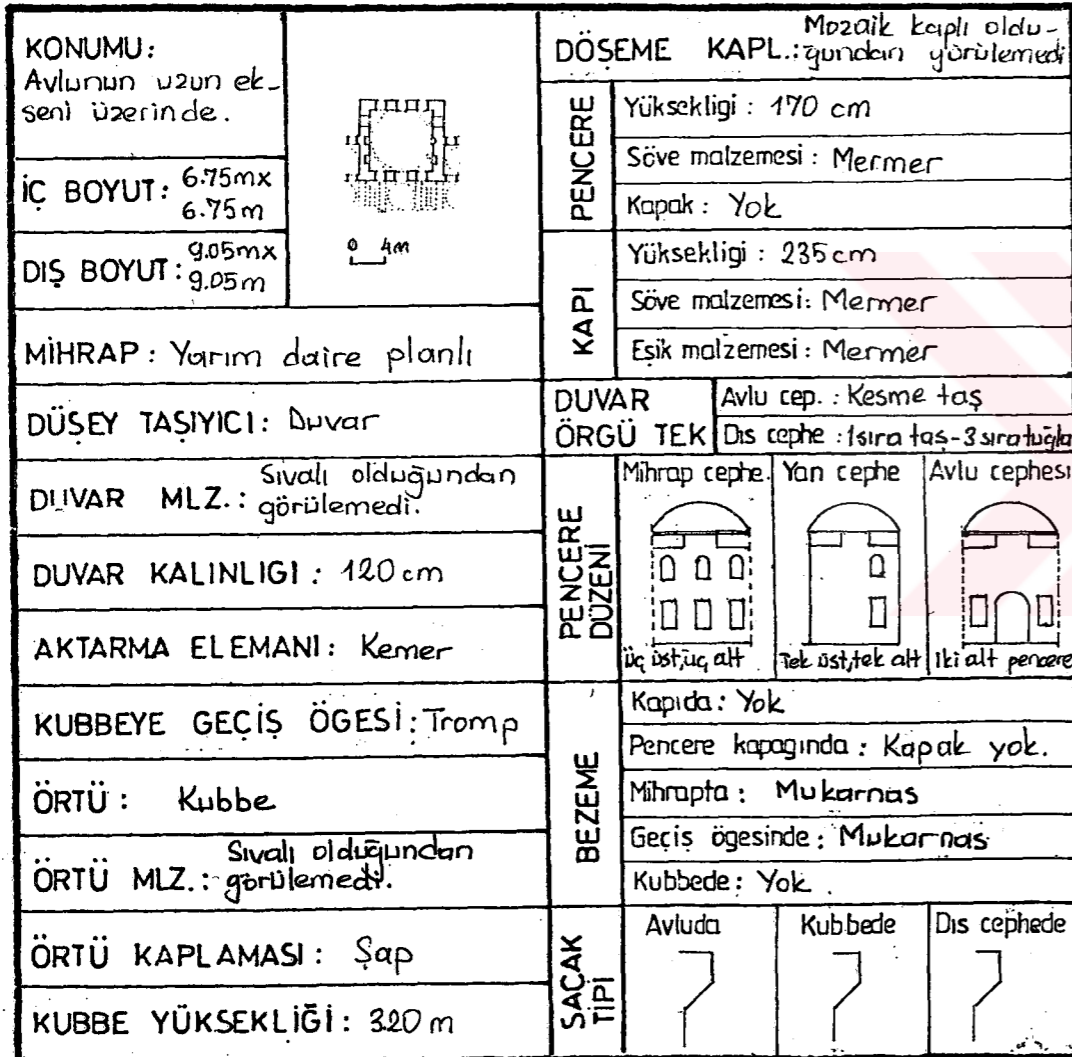 KONUMU:
Avlunun uzun ek-
seni üzerinde.
İÇ BOYUT: 6.75mx
6.75m
DIŞ BOYUT: 9.05mx
9.05m
0 4m
MİHRAP: Yarım daire planlı
DÜŞEY TAŞIYICI: Duvar
DUVAR MLZ.: Sıvalı olduğundan
görülemedi.
DUVAR KALINLIGI: 120 cm
AKTARMA ELEMANI: Kemer
KUBBEYE GEÇİŞ ÖGESİ: Tromp
ÖRTÜ: Kubbe
ÖRTÜ MLZ.: Sıvalı olduğundan
görülemedi.
ÖRTÜ KAPLAMASI: Şap
KUBBE YÜKSEKLİĞİ: 3.20 m
DÖŞEME KAPL.: Mozaik kaplı oldu-
ğundan görülemedi
PENCERE
Yüksekligi: 170 cm
Söve malzemesi: Mermer
Kapak: Yok
KAPI
Yüksekligi: 235 cm
Söve malzemesi: Mermer
Eşik malzemesi: Mermer
DUVAR
ÖRGÜ TEK
Avlu cep.: Kesme taş
Dıs cephe: 1sıra taş-3 sıra tuğla
PENCERE
DÜZENİ
Mihrap cephe. Yan cephe Avlu cephesi
Üç üst,üç alt Tek üst,tek alt İki alt pencere
BEZEME
Kapıda: Yok
Pencere kapagında: Kapak yok.
Mihrapta: Mukarnas
Geçiş ögesinde: Mukarnas
Kubbede: Yok.
SAÇAK
TİPİ
Avluda Kubbede Dıs cephede